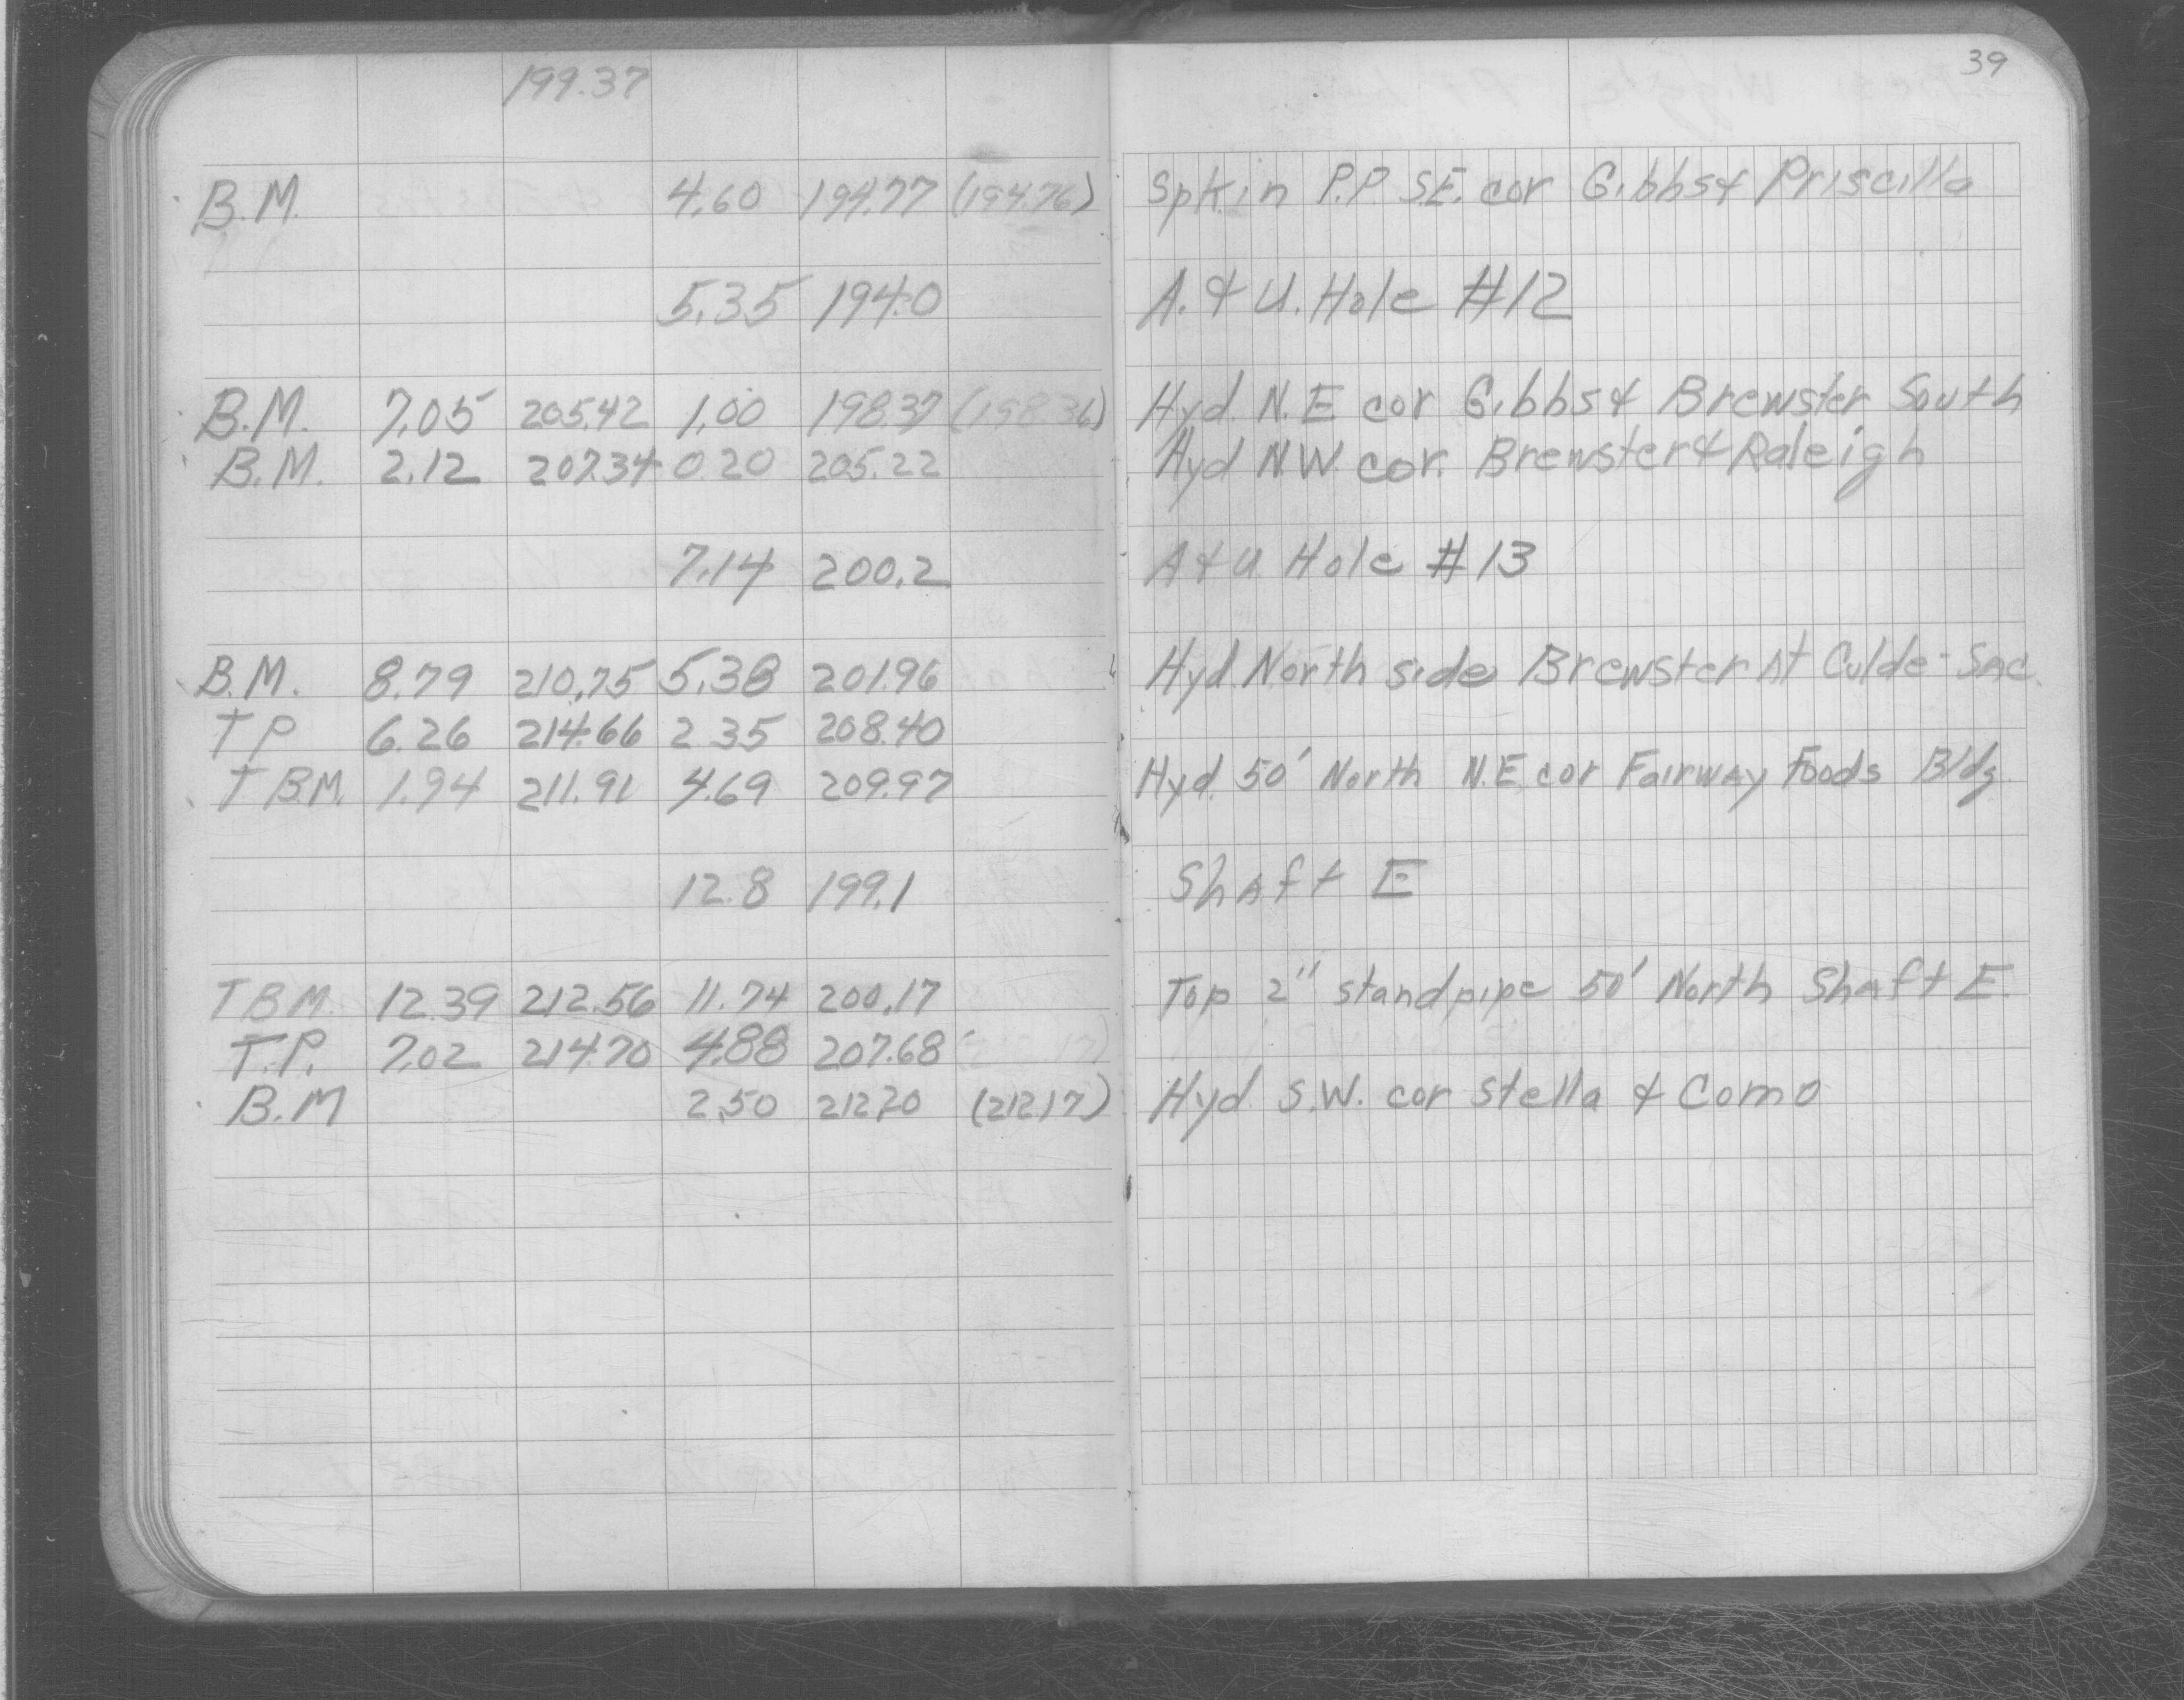 39
199.37
B.M. 4.60 194.77 (194.76) Spk in P.P. S.E. cor Gibbs & Priscilla
5.35 194.0 A. & U. Hole #12
B.M. 7.05 205.42 1.00 198.37 (198.36) Hyd. N.E. cor Gibbs & Brewster South
B.M. 2.12 207.34 0.20 205.22 Hyd N.W. cor. Brewster & Raleigh
7.14 200.2 A & U Hole #13
B.M. 8.79 210.75 5.38 201.96 Hyd. North side Brewster At Culde-Sac.
T P 6.26 214.66 2 35 208.40
T B.M. 1.94 211.91 4.69 209.97 Hyd. 50' North N.E. cor Fairway Foods Bldg.
12.8 199.1 Shaft E
T B M. 12.39 212.56 11.74 200.17 Top 2" standpipe 50' North Shaft E.
T.P. 7.02 214.70 4.88 207.68
B.M 2.50 212.20 (212.17) Hyd. S.W. cor Stella & Como